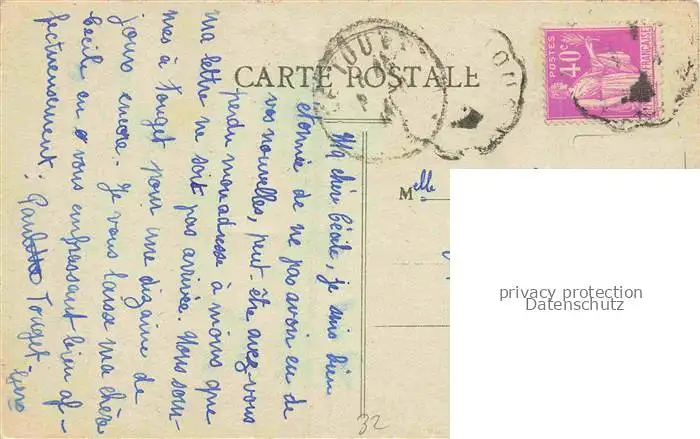 CARTE POSTALE
POSTES
40c
FRANÇAISE
Ma chère Cécile, je suis bien
étonnée de ne pas avoir eu de
vos nouvelles, peut-être avez-vous
perdu mon adresse à moins que
ma lettre ne soit pas arrivée. Nous som-
mes à Touget pour une dizaine de
jours encore. Je vous laisse ma chère
Cécile en vous embrassant bien af-
fectueusement : Paulette Touget-
Gers
Melle
privacy protection
Datenschutz
32